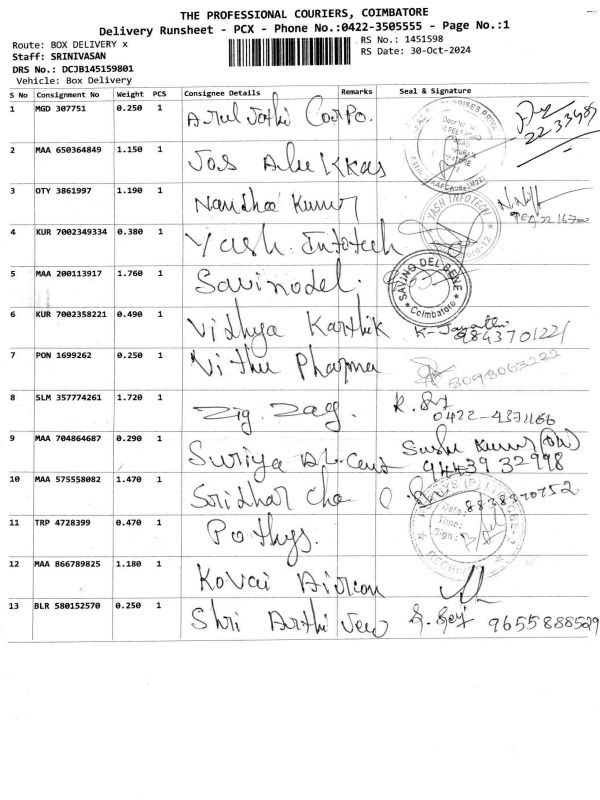 THE PROFESSIONAL COURIERS, COIMBATORE
Delivery Runsheet - PCX - Phone No.:0422-3505555 - Page No.:1
Route: BOX DELIVERY x
RS No.: 1451598
Staff: SRINIVASAN
RS Date: 30-Oct-2024
DRS No.: DCJB145159801
Vehicle: Box Delivery
S No Consignment No Weight PCS Consignee Details Remarks Seal & Signature
1 MGD 307751 0.250 1 Arul Jothi Corpo.
2 MAA 650364849 1.150 1 Jos Alukkas
3 OTY 3861997 1.190 1 Nandha Kumar
4 KUR 7002349334 0.380 1 Yash. Infotech YASH INFOTECH
5 MAA 200113917 1.760 1 Savinodel. SAVINO DEL BENE Coimbatore
6 KUR 7002358221 0.490 1 Vidhya Karthik K- Jayanthi 9843701221
7 PON 1699262 0.250 1 Vithu Pharma 8098063222
8 SLM 357774261 1.720 1 Zig. Zag. 0422-4371166
9 MAA 704864687 0.290 1 Suriya 9443932998
10 MAA 575558082 1.470 1 Sridhar Cha 8838370752
11 TRP 4728399 0.470 1 Pothys. Date: Time: Sign:
12 MAA 866789825 1.180 1 Kovai Aircon
13 BLR 580152570 0.250 1 Shri Arthi Jew 9655888529